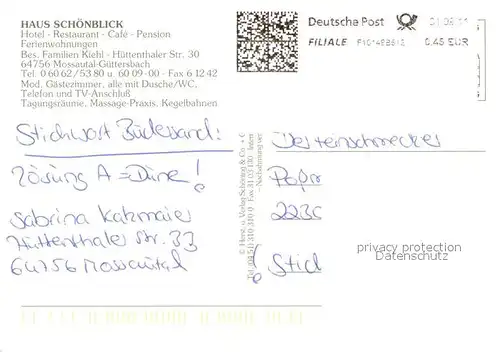 HAUS SCHÖNBLICK
Hotel - Restaurant - Café - Pension
Ferienwohnungen
Bes. Familien Kiehl · Hüttenthaler Str. 30
64756 Mossautal-Güttersbach
Tel. 0 60 62/53 80 u. 60 09-00 · Fax 6 12 42
Mod. Gästezimmer, alle mit Dusche/WC,
Telefon und TV-Anschluß
Tagungsräume, Massage-Praxis, Kegelbahnen
Deutsche Post
FILIALE
0,45 EUR
Stichwort Büdesand:
Lösung A = Düne!
Sabrina Katzmaier
Hüttenthaler Str. 33
64756 Mossautal
© Herst. u. Verlag Schöning & Co. + C
- Nachahmung ver
Der Feinschmecker
! Stich
privacy protection
Datenschutz